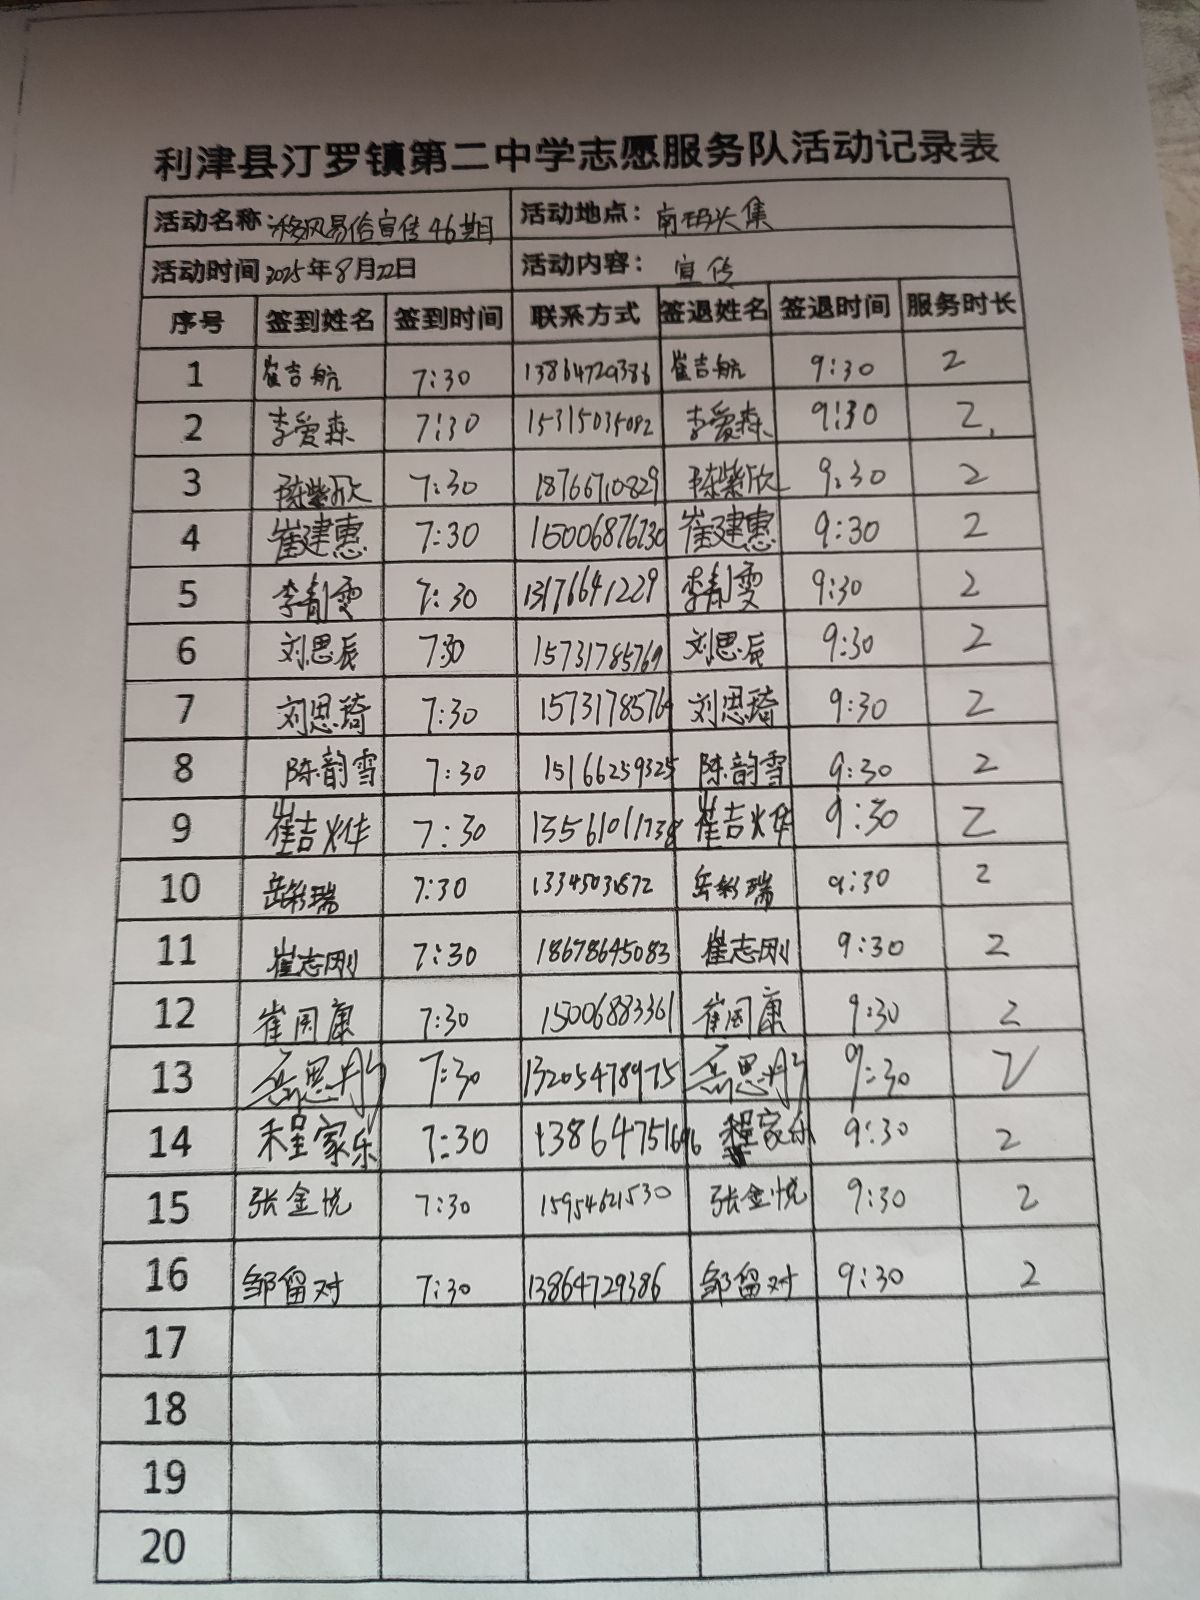 利津县汀罗镇第二中学志愿服务队活动记录表
活动名称 移风易俗宣传46期 活动地点：南码头集
活动时间 2025年8月22日 活动内容：宣传
序号 签到姓名 签到时间 联系方式 签退姓名 签退时间 服务时长
1 崔吉航 7:30 13864729386 崔吉航 9:30 2
2 李爱森 7:30 15315035082 李爱森 9:30 2
3 陈紫欣 7:30 18766710829 陈紫欣 9:30 2
4 崔建惠 7:30 15006876730 崔建惠 9:30 2
5 李青雯 7:30 13176641229 李青雯 9:30 2
6 刘思辰 7:30 15731785769 刘思辰 9:30 2
7 刘思琦 7:30 1573178576 刘思琦 9:30 2
8 陈韵雪 7:30 15166259325 陈韵雪 9:30 2
9 崔吉烨 7:30 13561011738 崔吉烨 9:30 2
10 岳彩瑞 7:30 13345031872 岳彩瑞 9:30 2
11 崔志刚 7:30 18678645083 崔志刚 9:30 2
12 崔国康 7:30 15006883361 崔国康 9:30 2
13 7:30 13205478975 9:30 2
14 程家乐 7:30 13864751696 程家乐 9:30 2
15 张金悦 7:30 15954621530 张金悦 9:30 2
16 邹留对 7:30 13864729386 邹留对 9:30 2
17
18
19
20